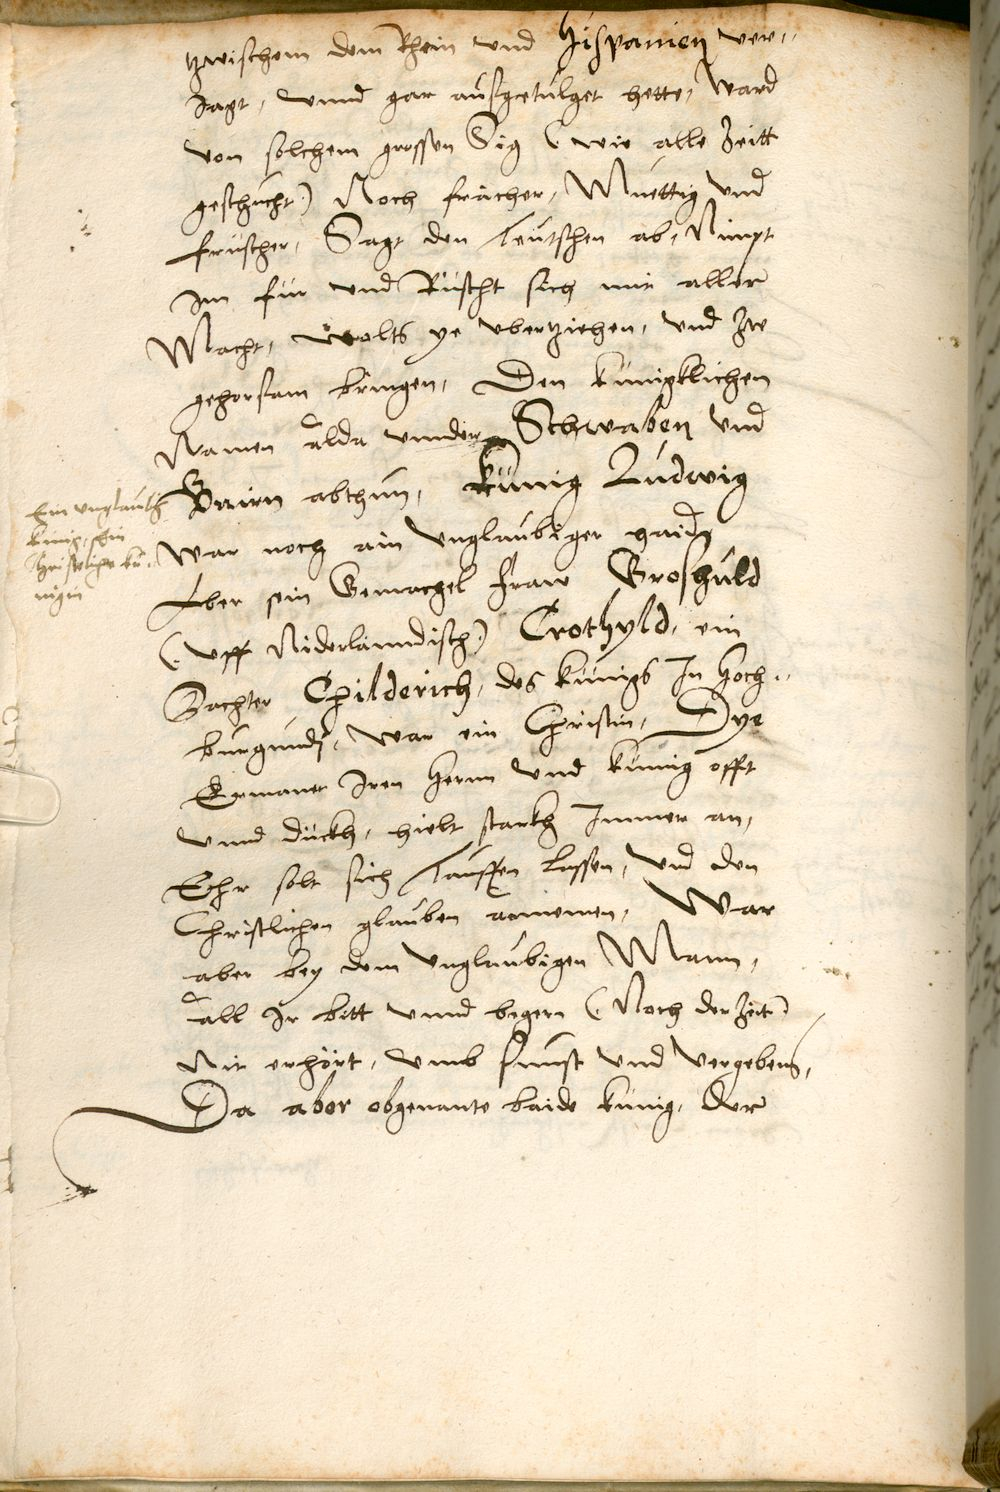 tzwischem dem Rhein und Hispanien ver„
Jagt, vnnd gar außgetulget hette, Ward
von solchem grossen Sig (wie alle Zeitt
geschicht) Noch frächer, Muettig vnd
früscher, Sagt den Teutschen ab, Nimpt
Im für vnd Rüscht sich mit aller
Macht, wolts ye vbertziehen, vnd Zw
gehorsam bringen, Den künigklichen
Namen alda vnnder Schwaben vnd
Bairn abthun, Künig Ludwig
war noch ain vnglaubiger haid,
Aber sein Gemachel fraw Groshuld
(vff Niderlanndisch) Crothyld, ein
Dochter Childerich, des künigs In Hoch„
burgundj, war ein Christin, Dye
Ermanet Iren Herrn vnd künig offt
vnnd dückh, hielt starkh Immer an,
Ehr solt sich Tauffen lassen, vnd den
Christlichen glauben annemen, War
aber bey dem vnglaubigen Mann,
all Ir bitt vnnd begern (Noch der Zeit)
Nit erhört, vmb sunst vnd vergebens,
Da aber obgenante baide künig, der
Ein vnglaubig
künig, ein
Christliche kü„
nigin